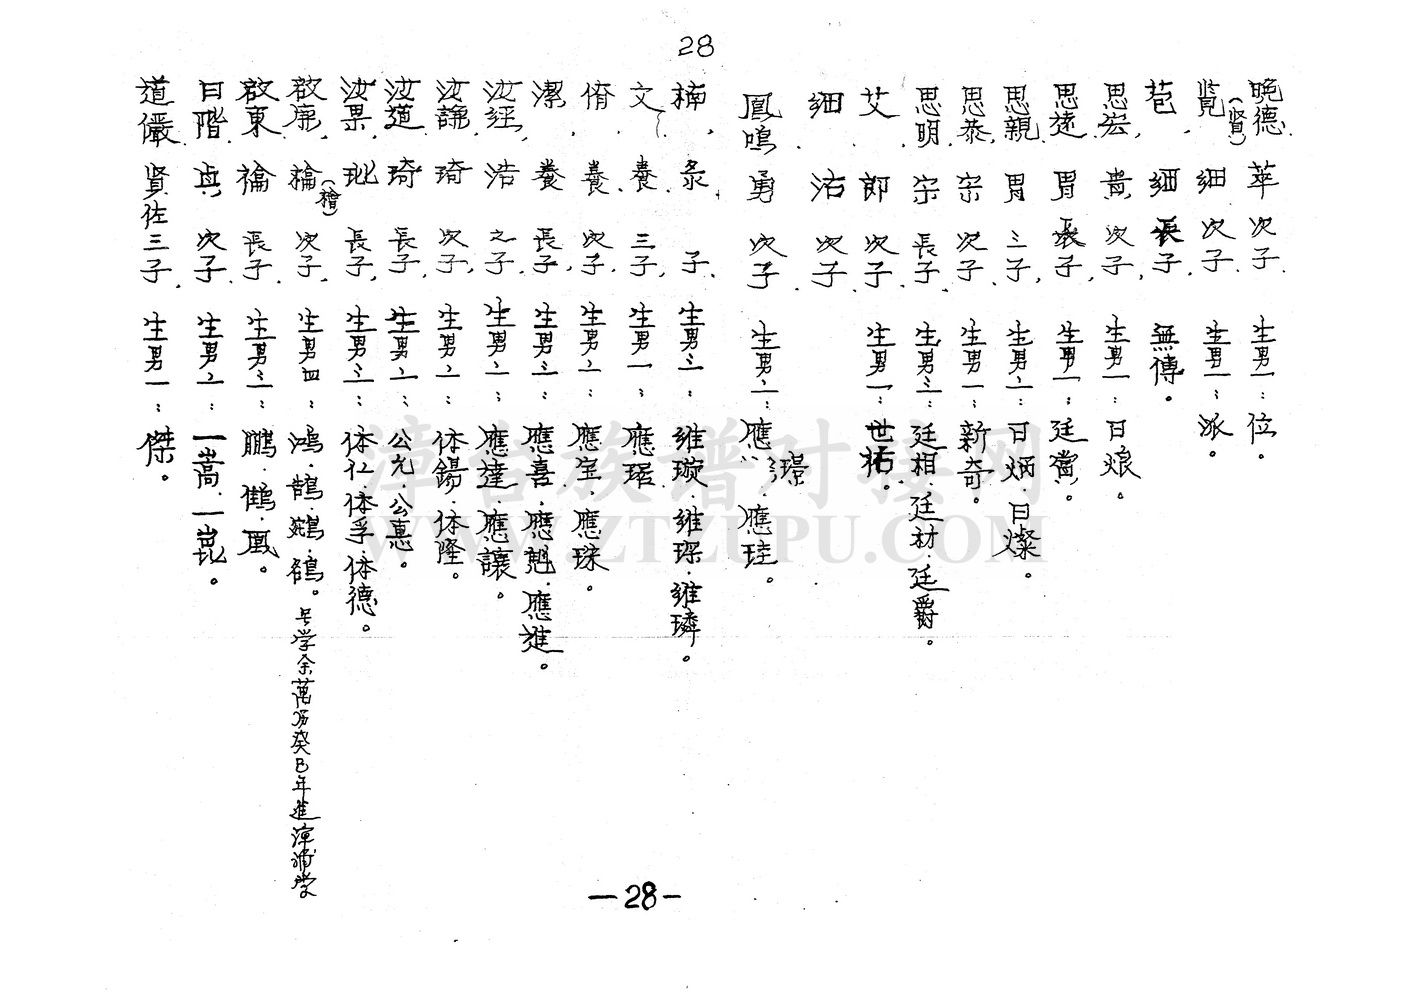 28
晚德(賢)萃次子.生男一:位。
覽.細次子.生男一:派。
苞.細長子.無傳。
思宏,貴次子.生男一:日烺。
思遠.胃長子.生男一:廷當。
思親.胃三子.生男二:日炳.日燦。
思恭.宗次子.生男一:新奇。
思明.宗長子.生男三:廷相.廷材.廷爵。
艾.郎次子.生男一:世拓。
細 活次子.
鳳鳴 勇次子 生男二:應璟.應珪。
楠,彔子.生男三:維璇.維琛.維璘。
文.養三子.生男一:應琚。
脩.養次子.生男二:應宝.應珠。
潔.養長子.生男三:應喜.應魁.應進。
汝經.浩之子.生男二:應達.應讓。
汝謙.琦次子.生男二:体錫.体隆。
汝道.琦長子.生男二:公允.公惠。
汝果.玭長子.生男三:体仁.体孚.体德。
啟廉.棆(檜)次子.生男四:鴻.鵠.鵷.鶴。号学余萬历癸B年進漳浦学
啟東.禴長子.生男三:鵬.鶴.凰。
日階.與次子.生男二:一嵩.一崑。
道儼 賢佐三子.生男一:傑。
-28-
漳台族谱对接网
WWW.ZTZUPU.COM